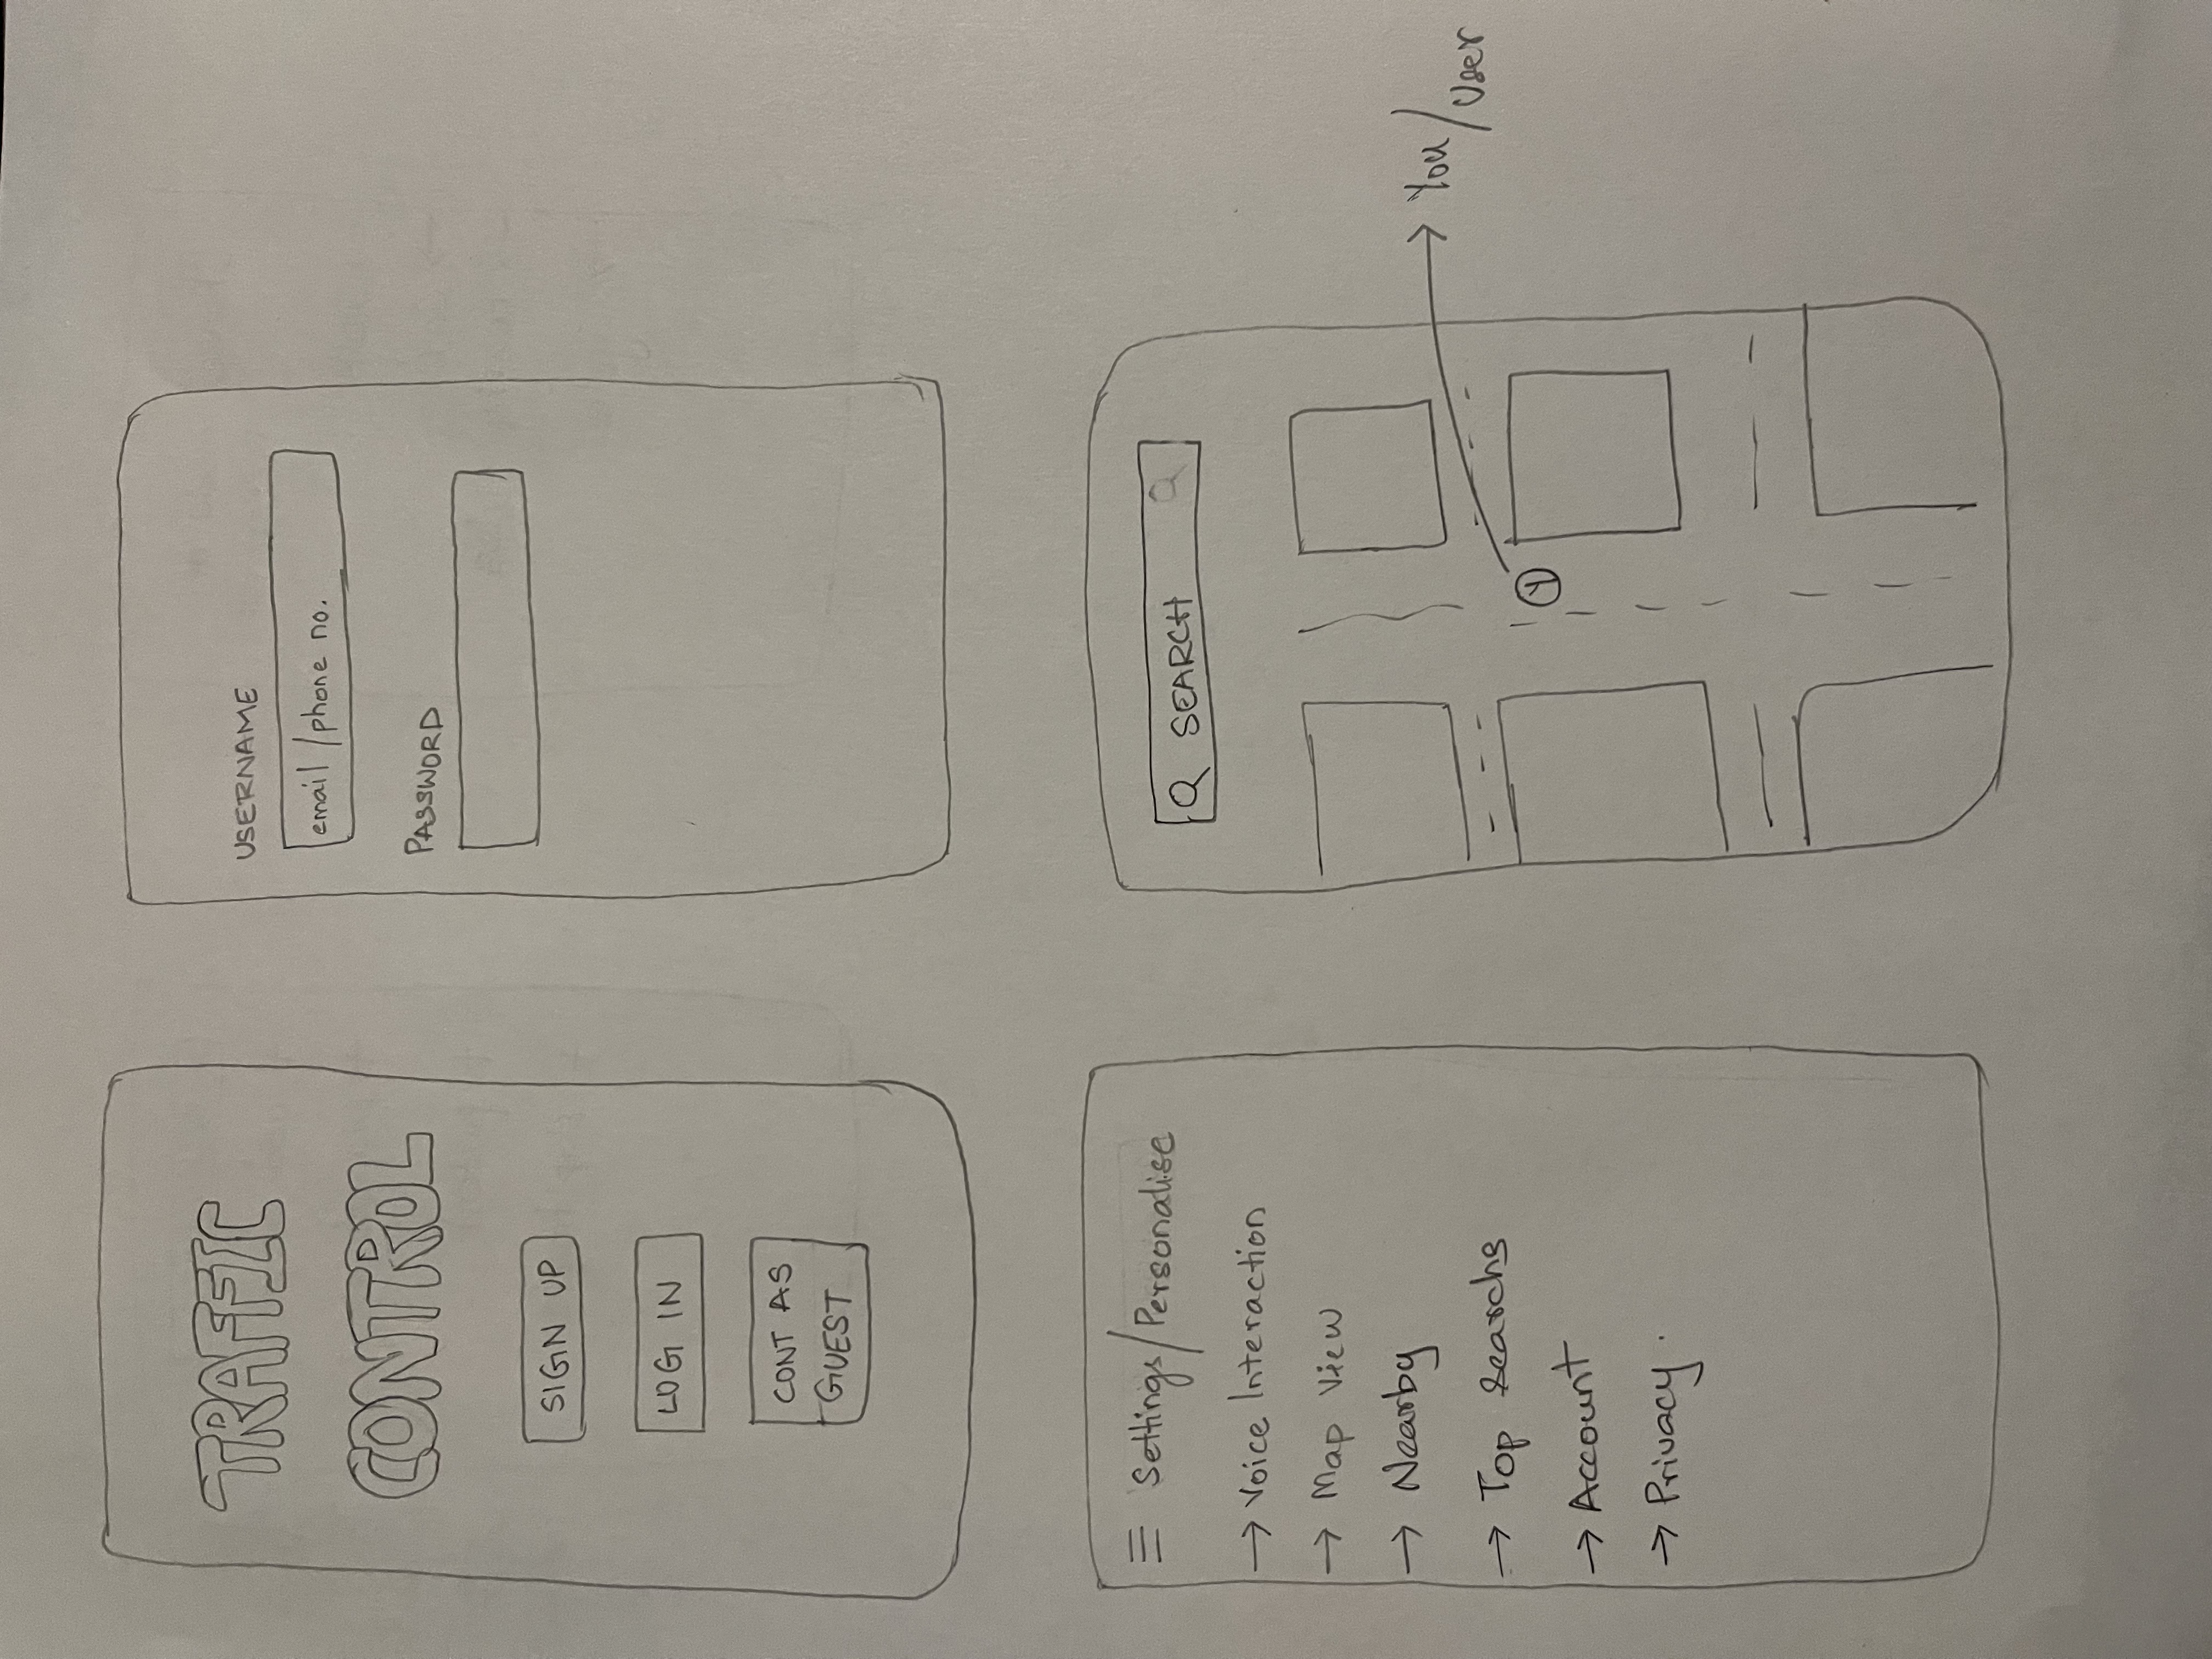 TRAFFIC
CONTROL
SIGN UP
LOG IN
CONT AS
GUEST
USERNAME
email / phone no.
PASSWORD
Settings/Personalise
Voice Interaction
Map View
Nearby
Top Searchs
Account
Privacy.
SEARCH
Y
You/User